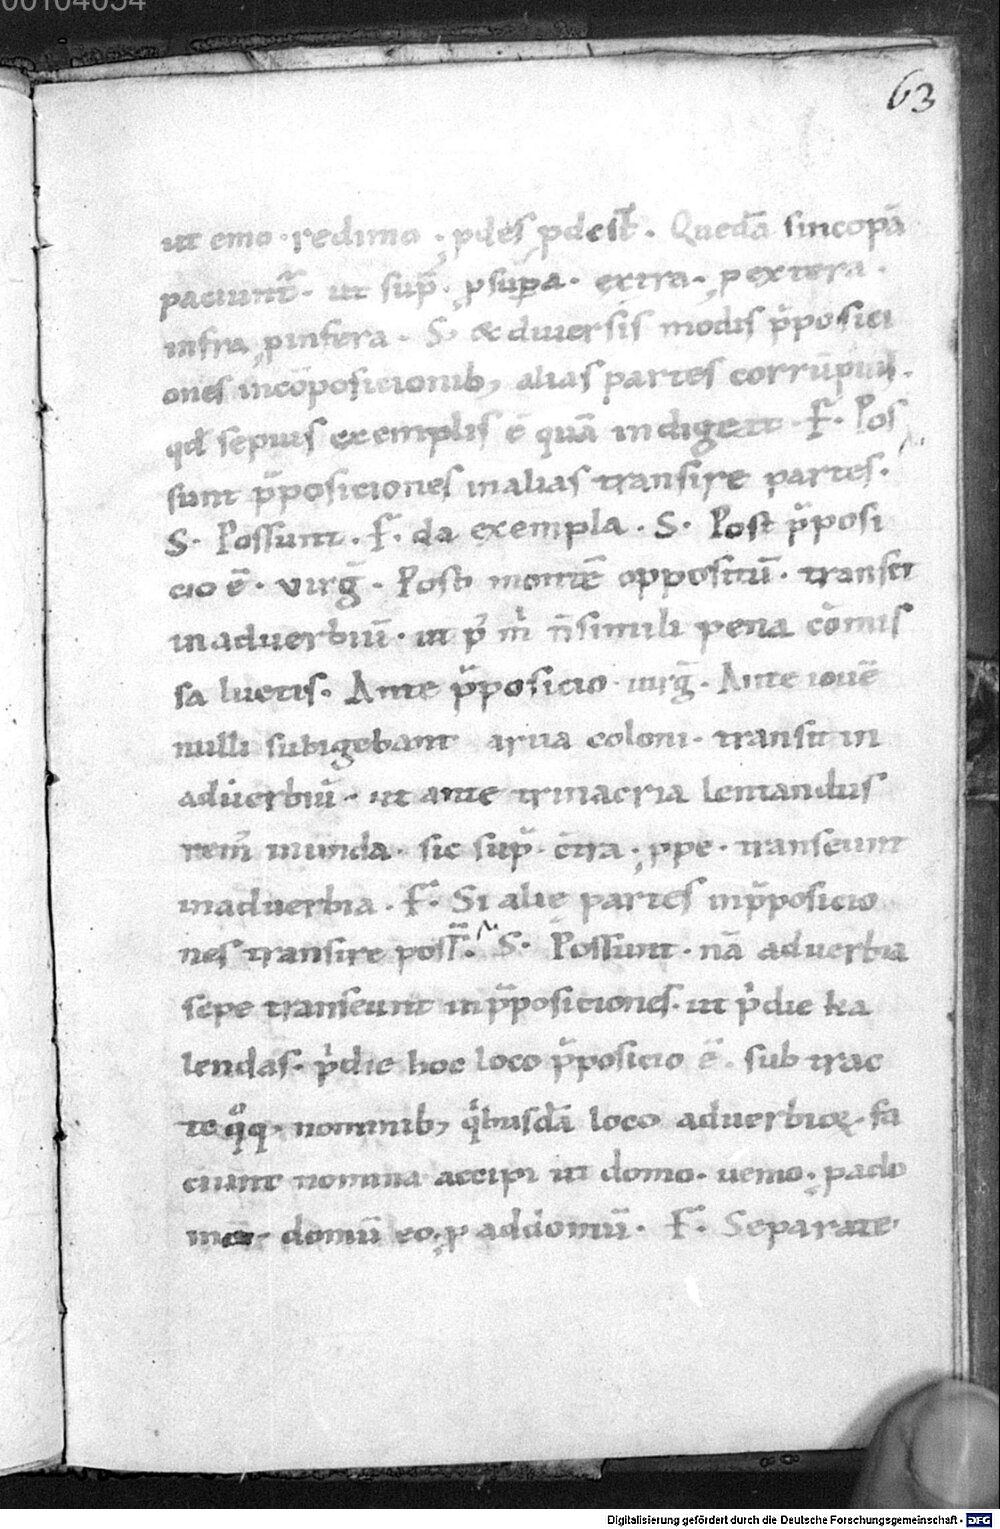 00104054
63
ut emo · redimo · ꝓdes ꝓdest̄ · Quedā sincopā
paciunt᷑ · ut sup̄ · ꝓ suꝑa · extra · ꝓ extera ·
infra ꝓ infera · S· & diuersis modis p̄posici
ones incōposicionib; alias partes corrūpūt ·
qd̄ sepius exemplis ē quā indigeat · F· Pos
sunt p̄posiciones in alias transire partes ·
S· Possunt · F· da exempla · S· Post p̄posi
cio ē · virḡ · Post montē oppositū · transit
in aduerbiū · ut p̄ m̄ n̄ simili pena cōmis
sa luetis · Ante p̄posicio · uirḡ · Ante iouē
nulli subigebant arua coloni · transit in
aduerbiū · ut ante trinacria lentandus
rem᷑ in unda · sic sup̄ · cīra · ꝓpe · transeunt
in aduerbia · F· Si alie partes in p̄posicio
nes transire poss̄t · S· Possunt · nā aduerbia
sepe transeunt in p̄posiciones · ut p̍die ka
lendas · p̍die hoc loco p̄posicio ē · sub trac
te qͦq; nominib; q̍busdā loco aduerbioꝝ fa
ciunt nomina accipi ut domo · uenio · ꝓ a do
mo · domū eo · ꝓ ad domū · F· Separate
Digitalisierung gefördert durch die Deutsche Forschungsgemeinschaft - DFG